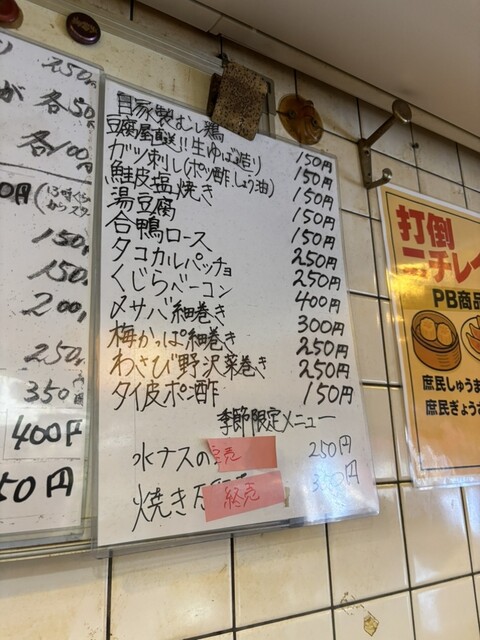 250円
が 各50
各100円
0円(13時ぐらい
150円
150円
200円
250円
350円
400円
50円
自家製むし鶏 150円
豆腐屋直送!!生ゆば(造り) 150円
ガツ刺し(ポッ酢,しょう油) 150円
鮭皮塩焼き 150円
湯豆腐 150円
合鴨ロース 250円
タコカルパッチョ 250円
くじらベーコン 400円
〆サバ細巻き 300円
梅かっぱ細巻き 250円
わさび野沢菜巻き 250円
タイ皮ポン酢 150円
季節限定メニュー
水ナスの 250円
焼き 円
終売
打倒
ニチレイ
PB商品
庶民しゅうま
庶民ぎょう